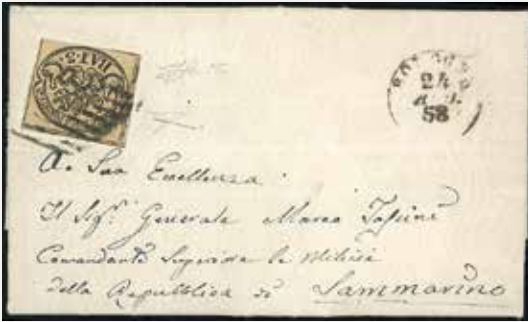 BAJ. 3.
24
58
A. Sua Eccellenza
Il Sigr. Generale Marco
Comandante Superiore le Milizie
della Repubblica di Sammarino